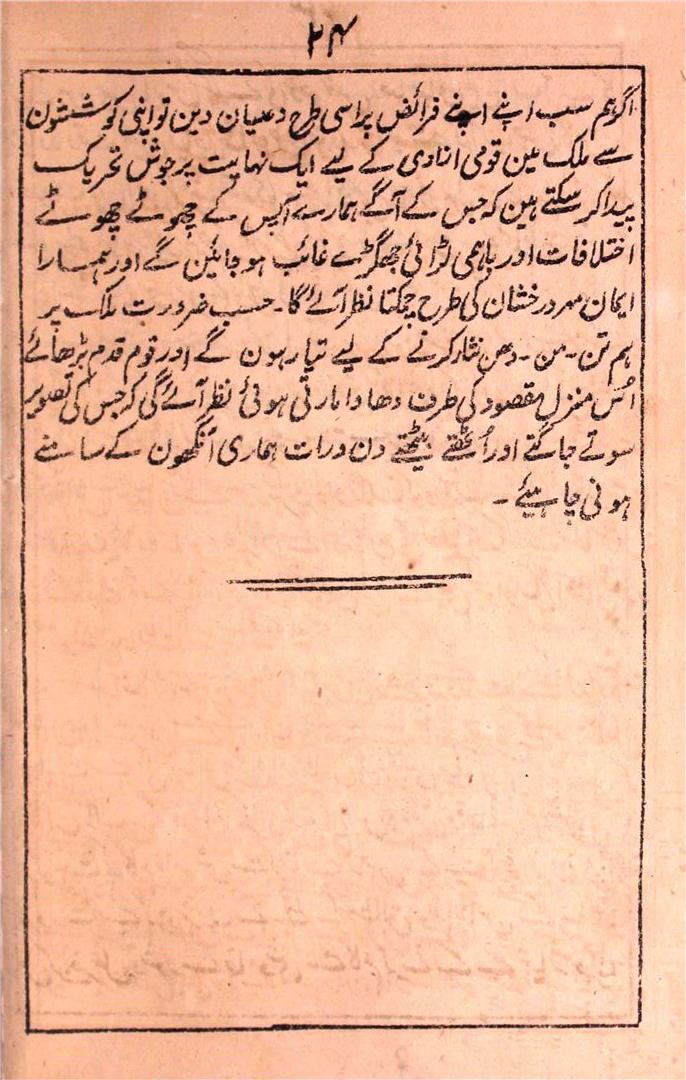 ۲۴
اگر ہم سب اپنے اپنے فرائض پر اسی طرح دھیان دین تو اپنی کوششون
سے ملک مین قومی آزادی کے لیے ایک نہایت پرجوش تحریک
پیدا کر سکتے ہین کہ جس کے آگے ہمارے آپس کے چھوٹے چھوٹے
اختلافات اور باہمی لڑائی جھگڑے غائب ہو جائین گے اور ہمارا
ایمان مہر درخشان کی طرح چمکتا نظر آئے گا۔ حسب ضرورت ملک پر
ہم تن۔ من۔ دھن نثار کرنے کے لیے تیار ہون گے اور قوم قدم بڑھائے
اُس منزل مقصود کی طرف دھاوا مارتی ہوئی نظر آئے گی کہ جس کی تصویر
سوتے جاگتے اور اُٹھتے بیٹھتے دن و رات ہماری آنکھون کے سامنے
ہونی چاہیئے۔